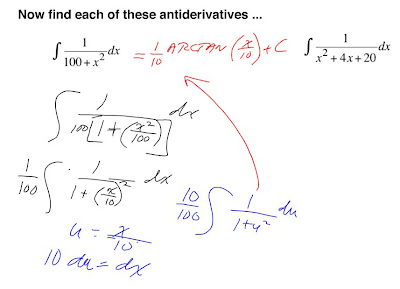 Now find each of these antiderivatives ...
∫ 1/(100 + x²) dx = 1/10 ARCTAN (x/10) + C
∫ 1/(x² + 4x + 20) dx
∫ 1/(100[1 + (x²/100)]) dx
1/100 ∫ 1/(1 + (x/10)²) dx
10/100 ∫ 1/(1+u²) du
u = x/10
10 du = dx